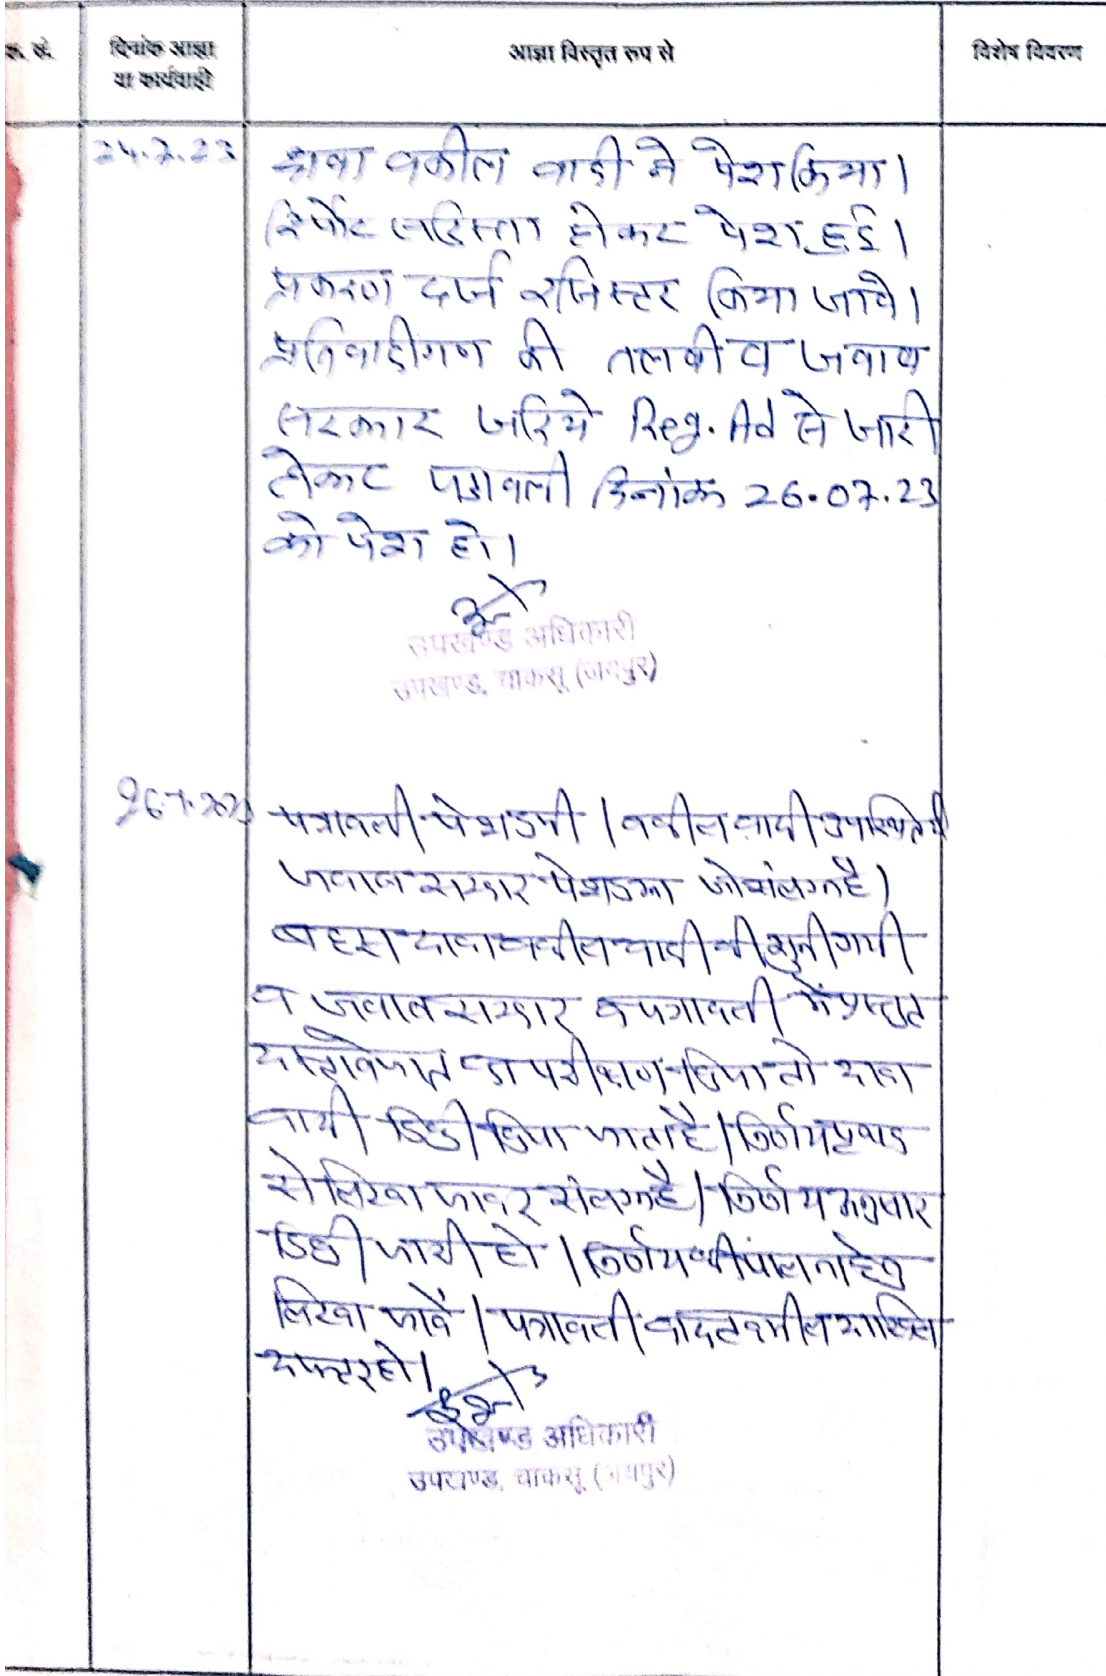 क्र. सं.
दिनांक आज्ञा
या कार्यवाही
आज्ञा विस्तृत रूप से
विशेष विवरण
24.7.23
दावा वकील वादी ने पेश किया।
रिर्पोट सरिस्ता होकर पेश हुई।
प्रकरण दर्ज रजिस्टर किया जावे।
प्रतिवादीगण की तलबी व जवाब
सरकार जरिये Reg. Ad से जारी
होकर पत्रावली दिनांक 26.07.23
को पेश हो।
उपखण्ड अधिकारी
उपखण्ड, चाकसू (जयपुर)
26.7.2023
पत्रावली पेश हुयी। वकील वादी उपस्थित
जवाब सरकार पेश हुआ जो संलग्न है।
बहस दावा वकील वादी की सुनी गयी
व जवाब सरकार व पत्रावली में प्रस्तुत
दस्तावेजात का परीक्षण किया तो दावा
वादी डिक्री किया जाता है। निर्णय पृथक
से लिखा जाकर संलग्न है। निर्णय अनुसार
डिक्री जारी हो। निर्णय की पालना हेतु
लिखा जावें। पत्रावली बाद तकमील दाखिल
दफ्तर हो।
उपखण्ड अधिकारी
उपखण्ड, चाकसू (जयपुर)